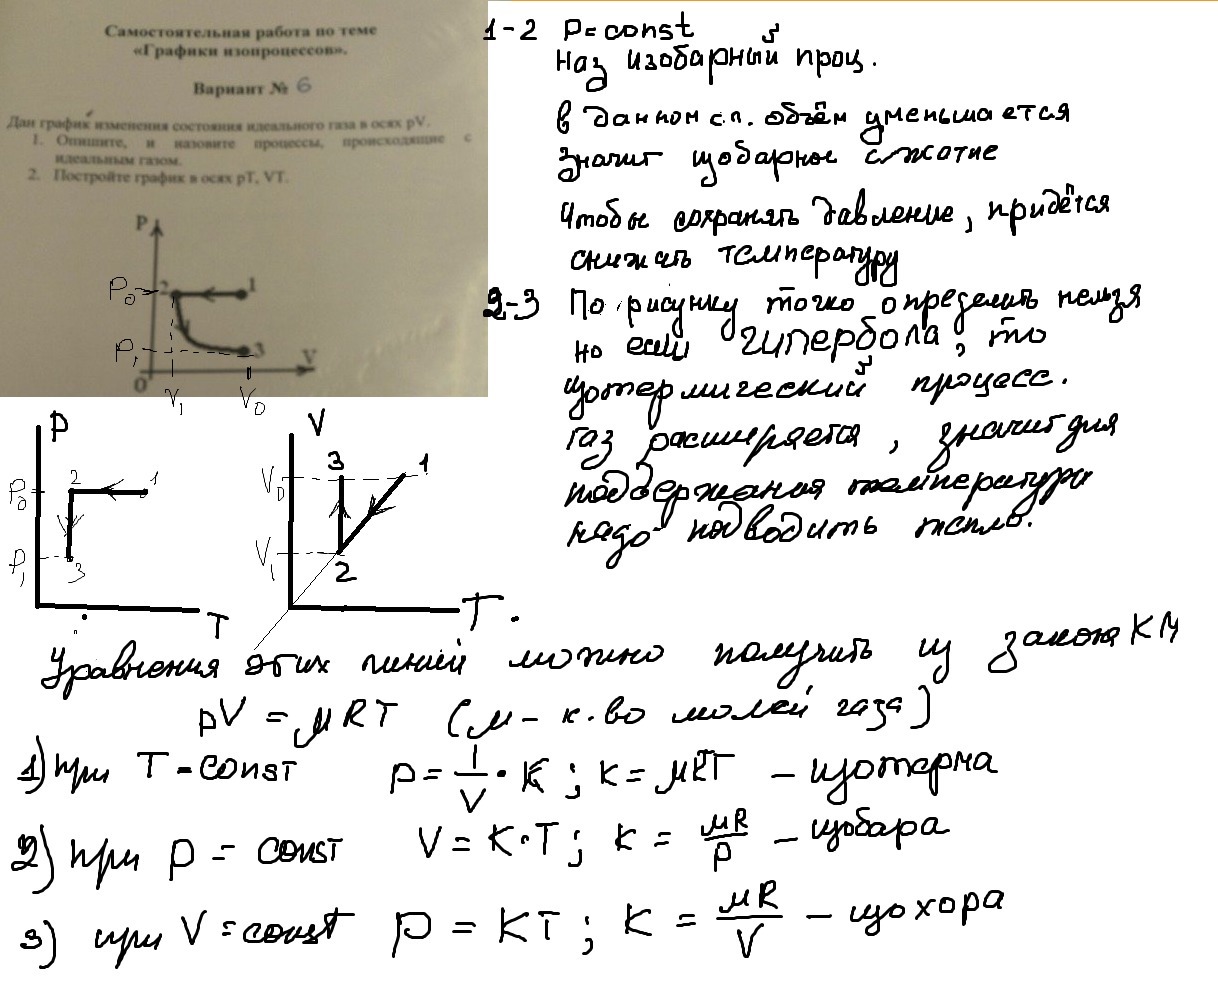 Самостоятельная работа по теме
«Графики изопроцессов».
Вариант № 6
Дан график изменения состояния идеального газа в осях pV.
1. Опишите, и назовите процессы, происходящие с
идеальным газом.
2. Постройте график в осях pT, VT.
P
P₀ 2 1
P₁ 3 V
0
V₁ V₀
1-2 P=const
наз изобарный проц.
в данном сл. объём уменьшается
значит изобарное сжатие
Чтобы сохранять давление, придётся
снижать температуру
2-3 По рисунку точно определить нельзя
но если гипербола, то
изотермический процесс.
газ расширяется, значит для
поддержания температуры
надо подводить тепло.
P
P₀ 2 1
P₁ 3
T
V
V₀ 3 1
V₁ 2
T.
Уравнения этих линий можно получить из закона КМ
pV = μRT (μ - к.во молей газа)
1) при T = const p = 1/V · K ; K = μRT – изотерма
2) при p = const V = K·T ; K = μR/p – изобара
3) при V = const p = KT ; K = μR/V – изохора